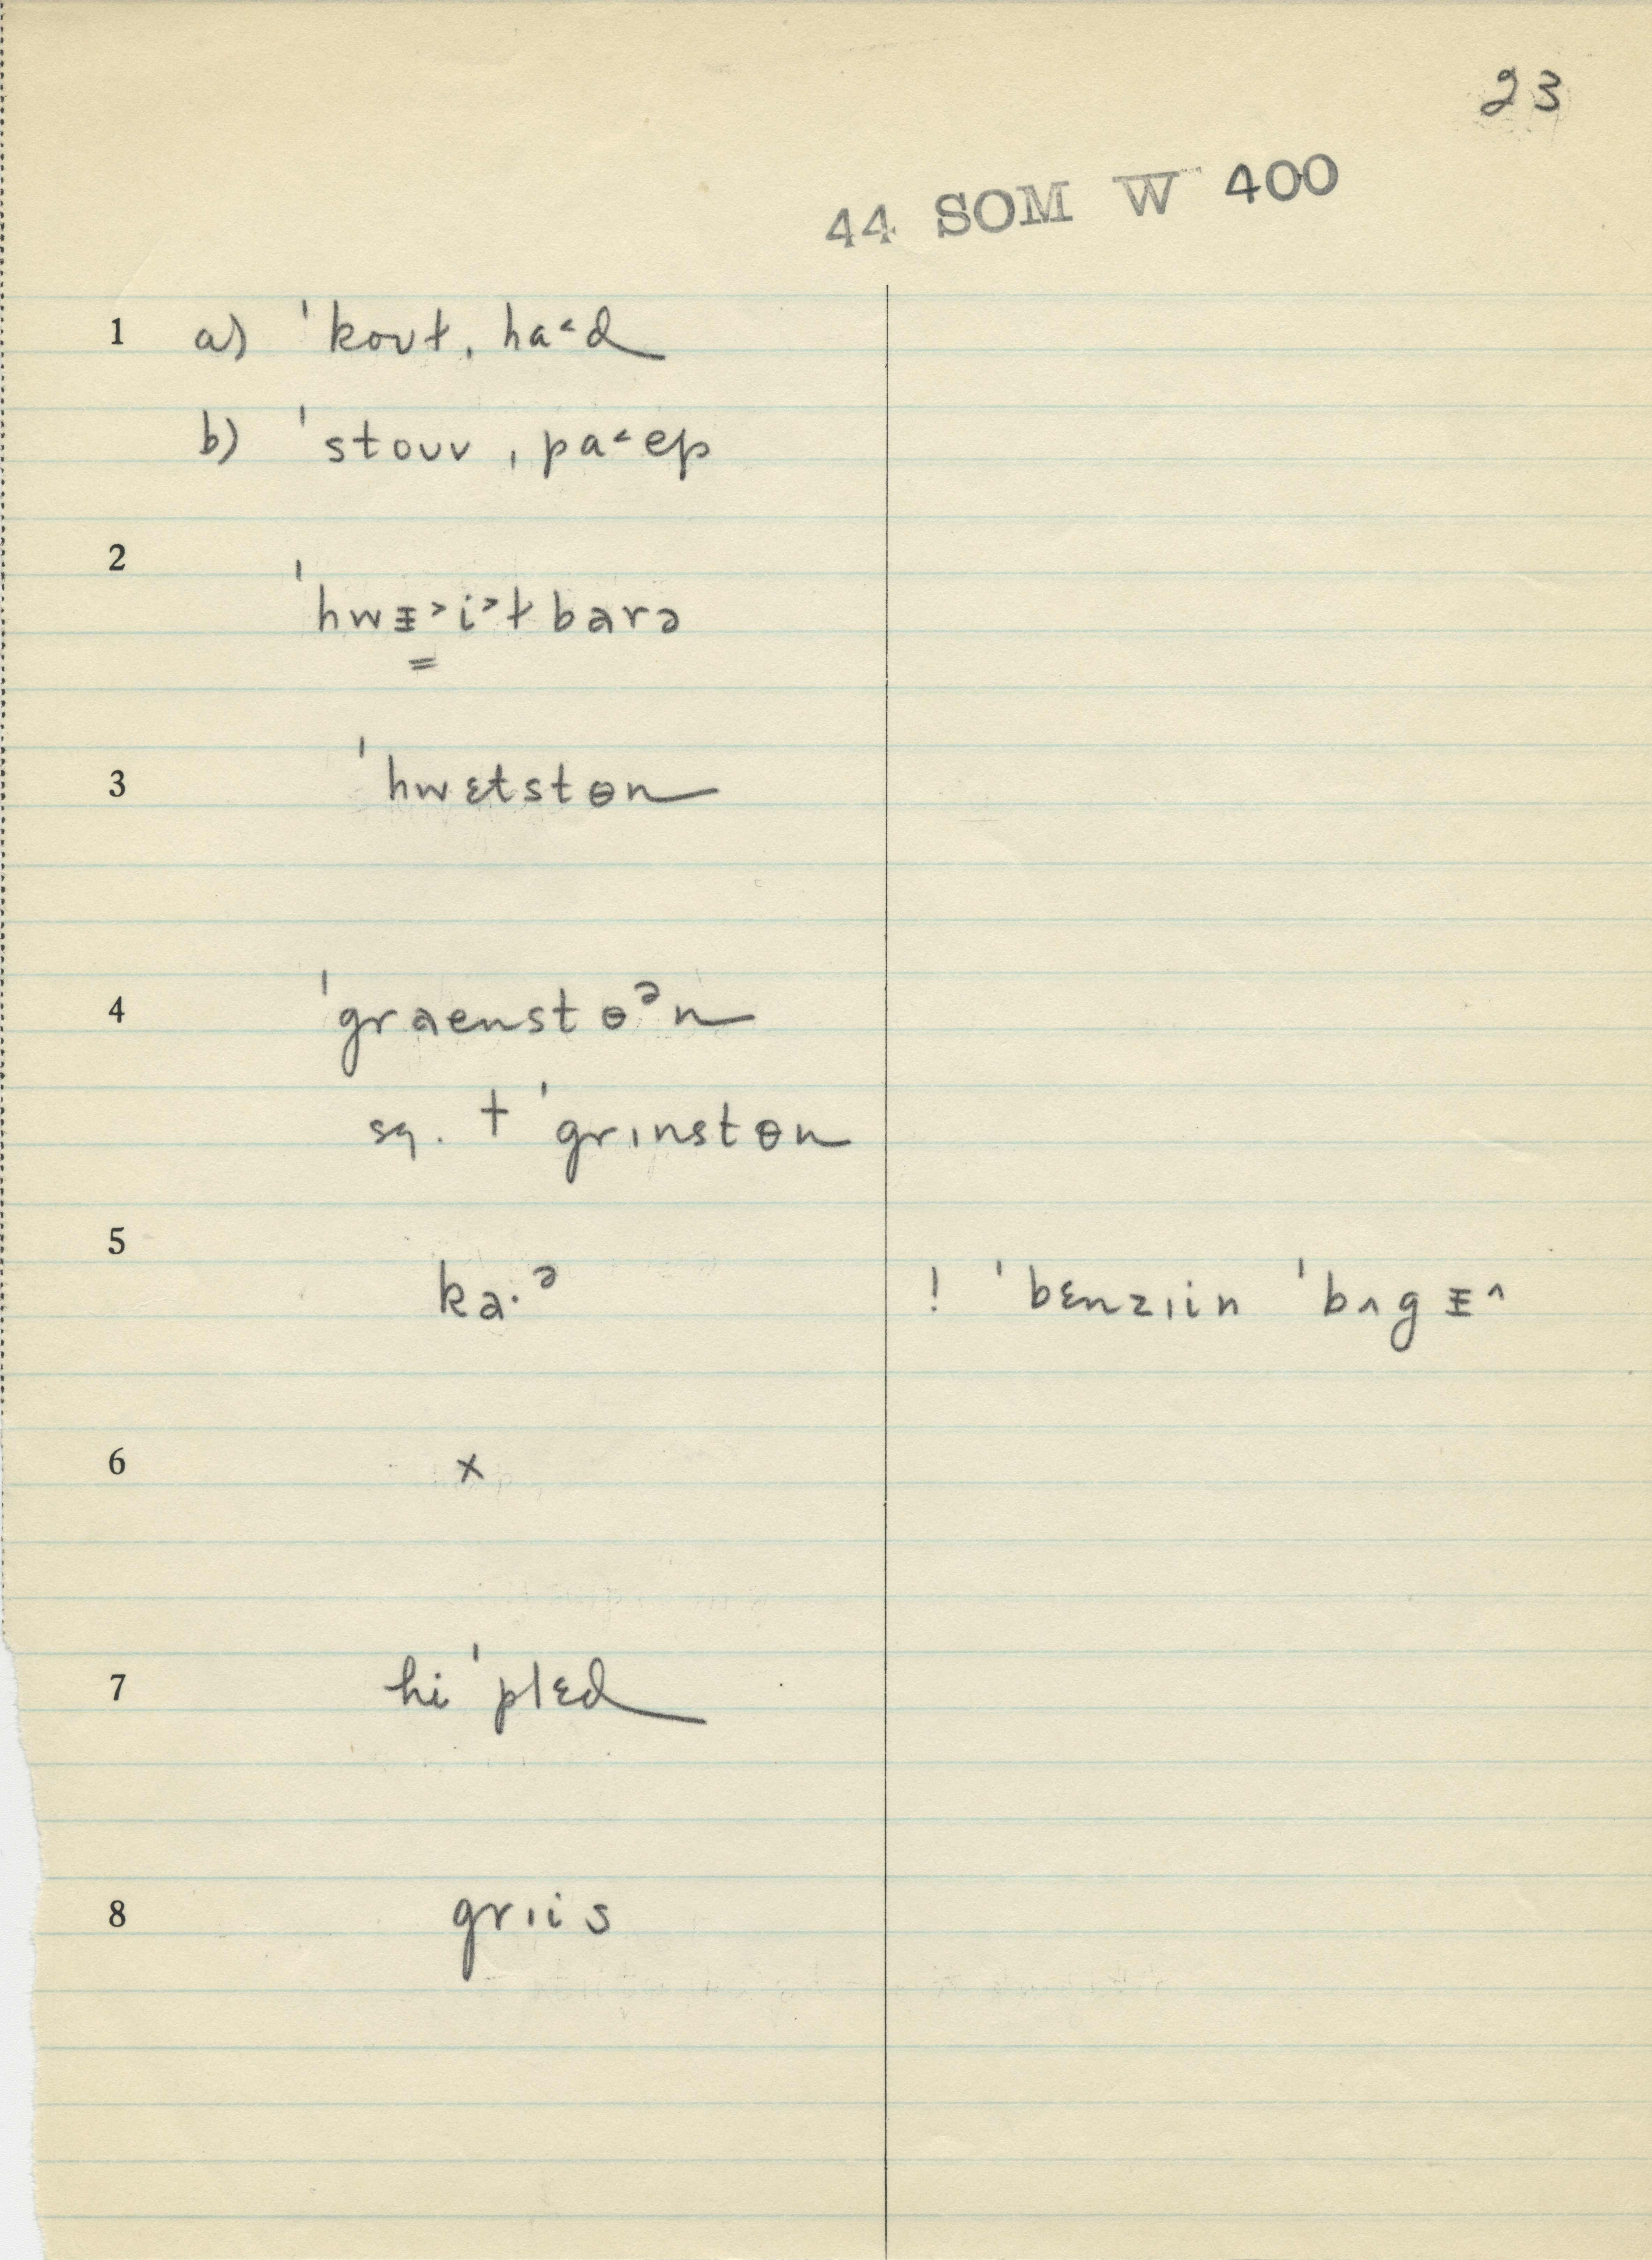 23
44 SOM W 400
1 a) ˈkoʊt, ha˂d
b) ˈstoʊv, pa˂ep
2
ˈhwᵻ˃i˃ɫbarə
=
3 ˈhwɛtstɵn
4 ˈgraenstɵᵊn
sq. † ˈgrɪnstɵn
5
ka·ᵊ ! ˈbɛnzɪin ˈbʌgᵻ˄
6 x
7 hi ˈplɛd
8 grɪis